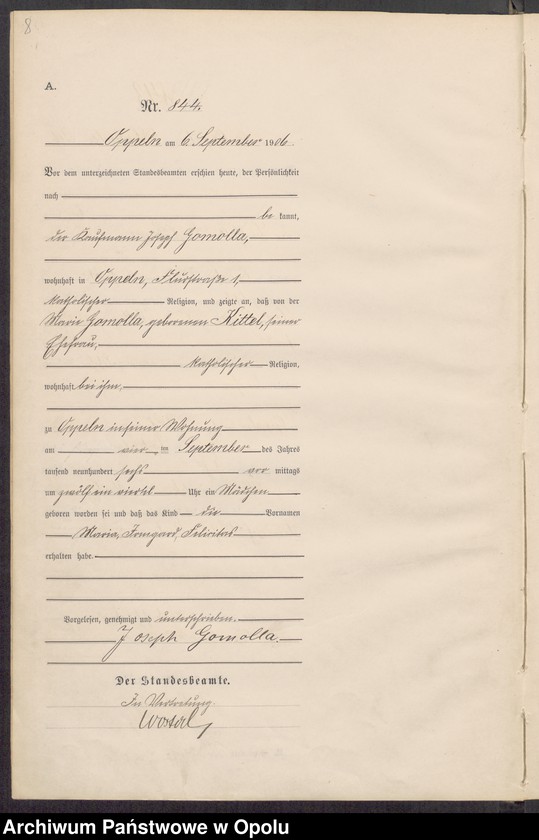 8
A.
Nr. 844.
Oppeln am 6 September 1906
Vor dem unterzeichneten Standesbeamten erschien heute, der Persönlichkeit
nach
be kannt,
der Kaufmann Joseph Gomolla,
wohnhaft in Oppeln, Flurstraße 1,
katholischer Religion, und zeigte an, daß von der
Marie Gomolla, geborenen Kittel, seiner
Ehefrau,
katholischer Religion,
wohnhaft bei ihm,
zu Oppeln in seiner Wohnung
am vier ten September des Jahres
tausend neunhundert sechs vor mittags
um zwölf ein viertel Uhr ein Mädchen
geboren worden sei und daß das Kind die Vornamen
Maria, Irmgard, Felicitas
erhalten habe.
Vorgelesen, genehmigt und unterschrieben.
Joseph Gomolla.
Der Standesbeamte.
In Vertretung
Archiwum Państwowe w Opolu